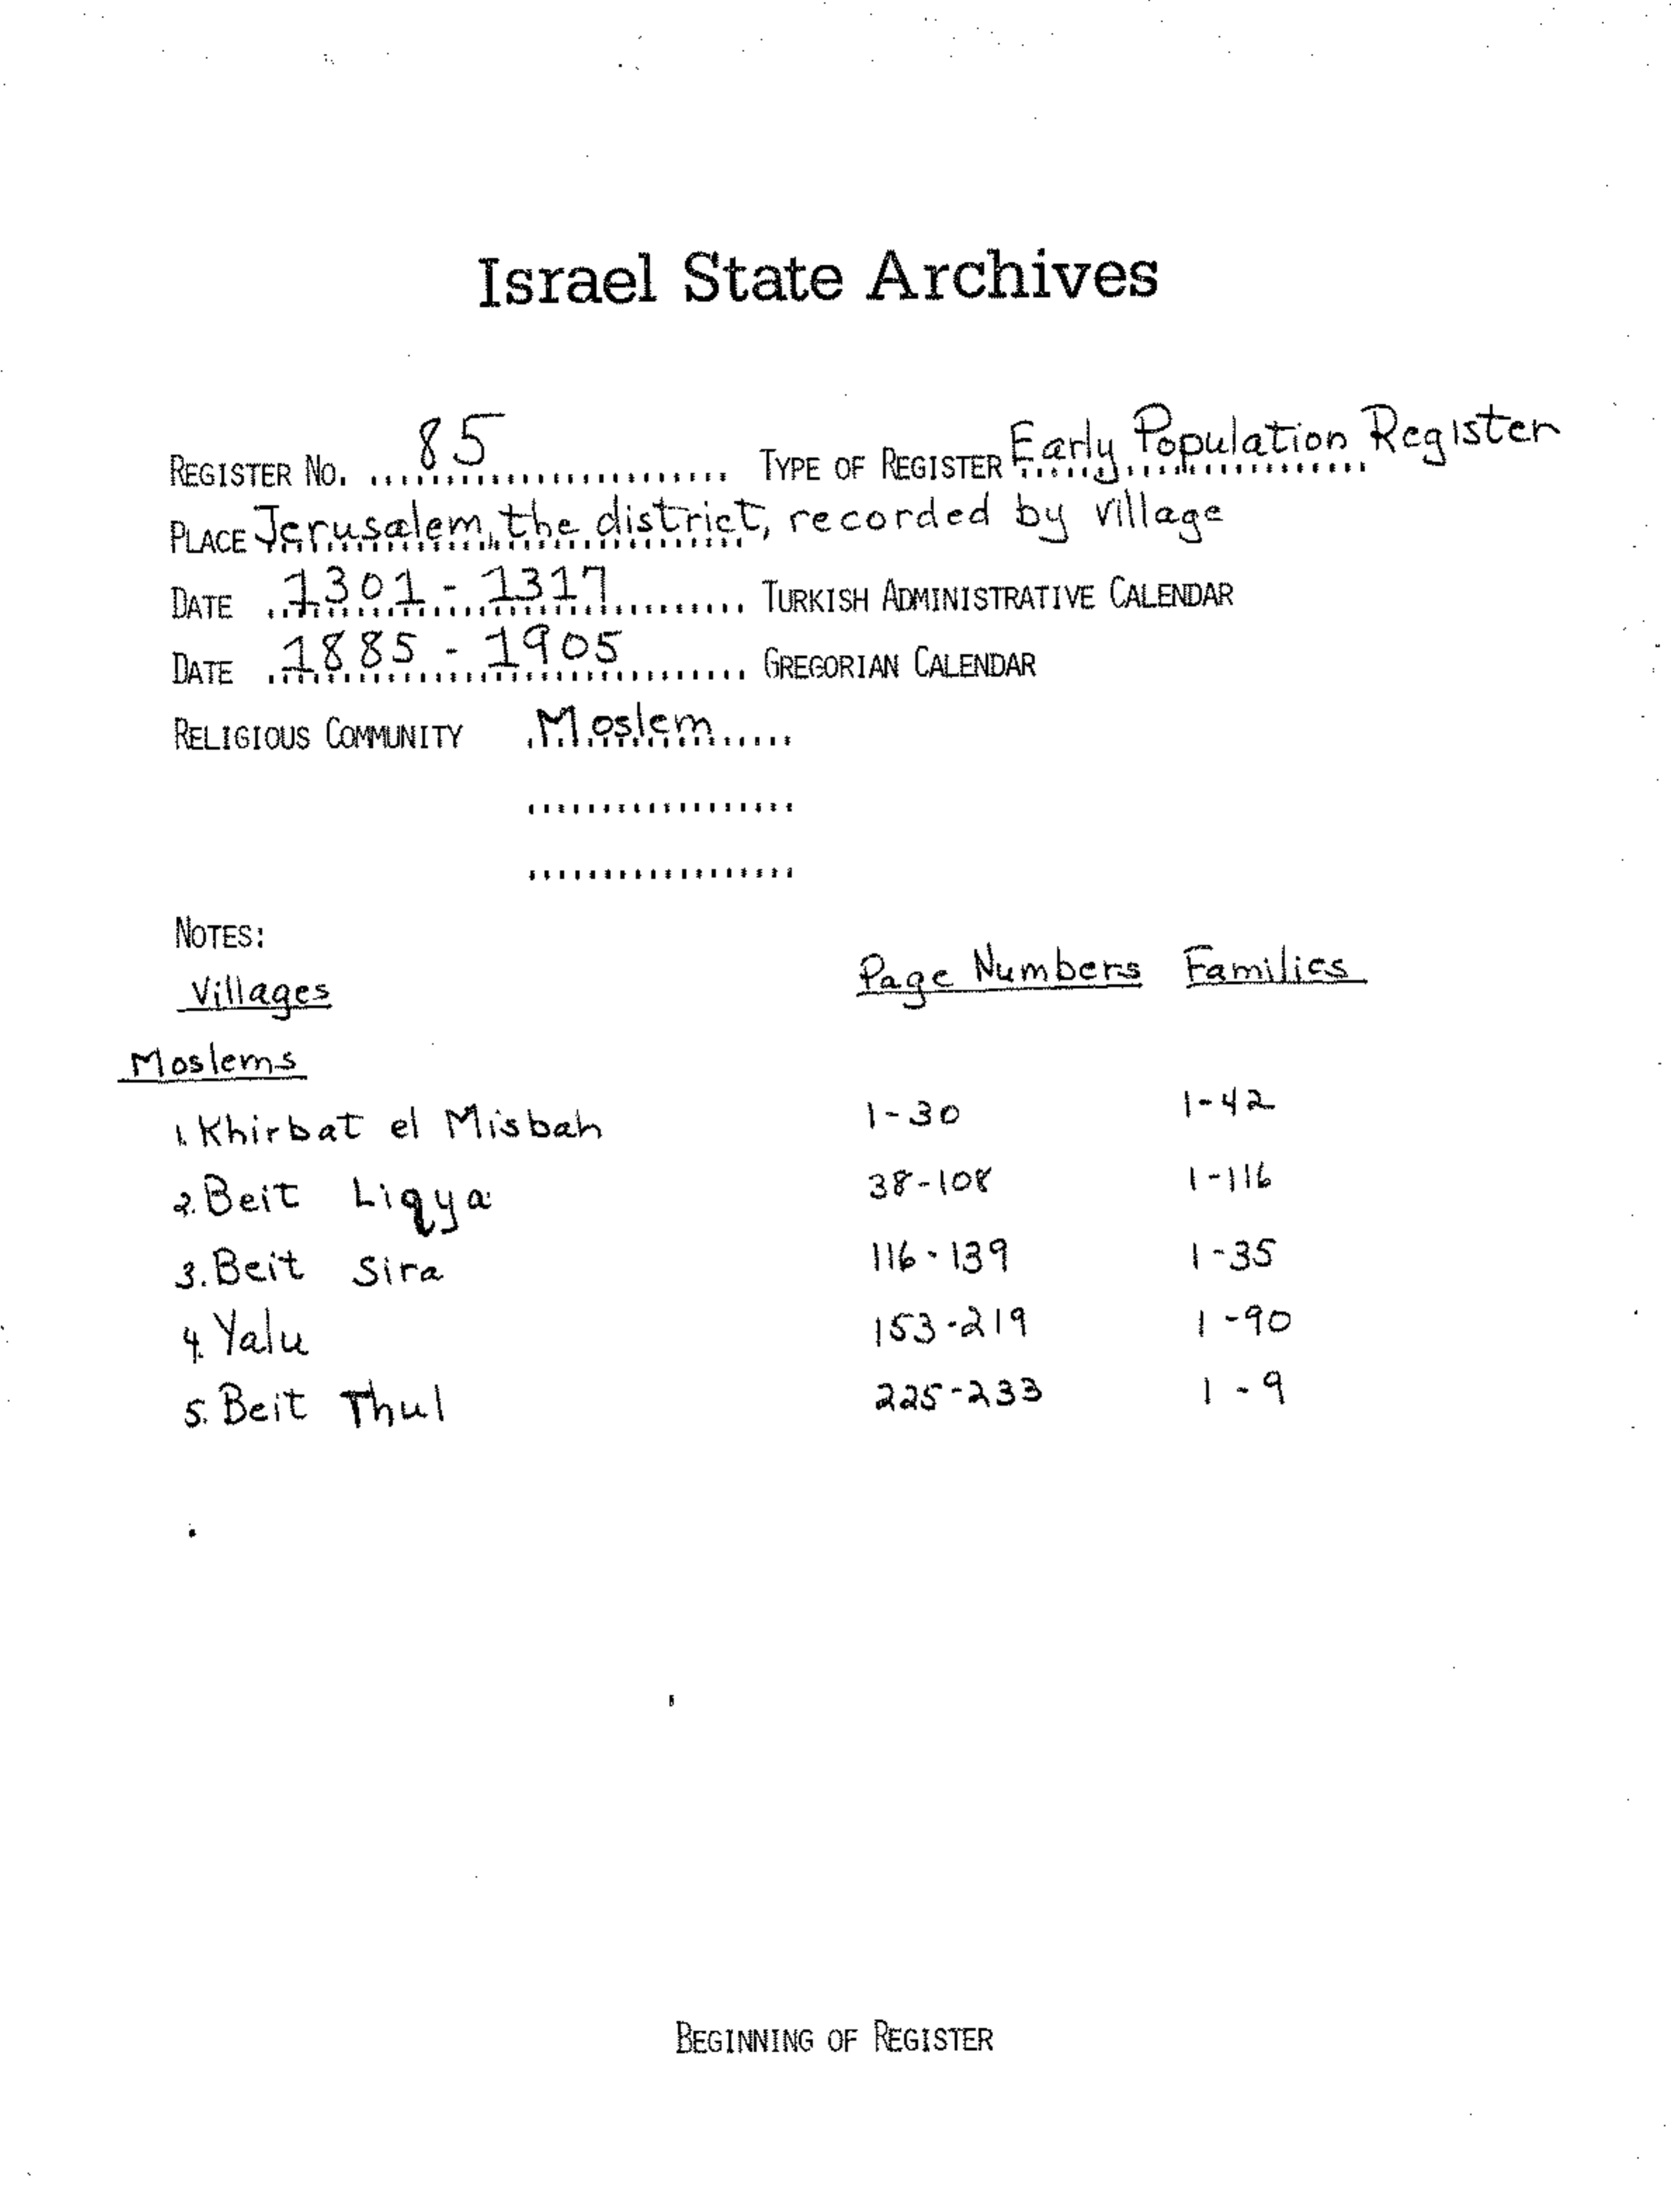 Israel State Archives
REGISTER NO. 85 TYPE OF REGISTER Early Population Register
PLACE Jerusalem, the district, recorded by village
DATE 1301 - 1317 TURKISH ADMINISTRATIVE CALENDAR
DATE 1885 - 1905 GREGORIAN CALENDAR
RELIGIOUS COMMUNITY Moslem
NOTES:
Villages Page Numbers Families
Moslems
1. Khirbat el Misbah 1-30 1-42
2. Beit Liqya 38-108 1-116
3. Beit Sira 116-139 1-35
4. Yalu 153-219 1-90
5. Beit Thul 225-233 1-9
BEGINNING OF REGISTER